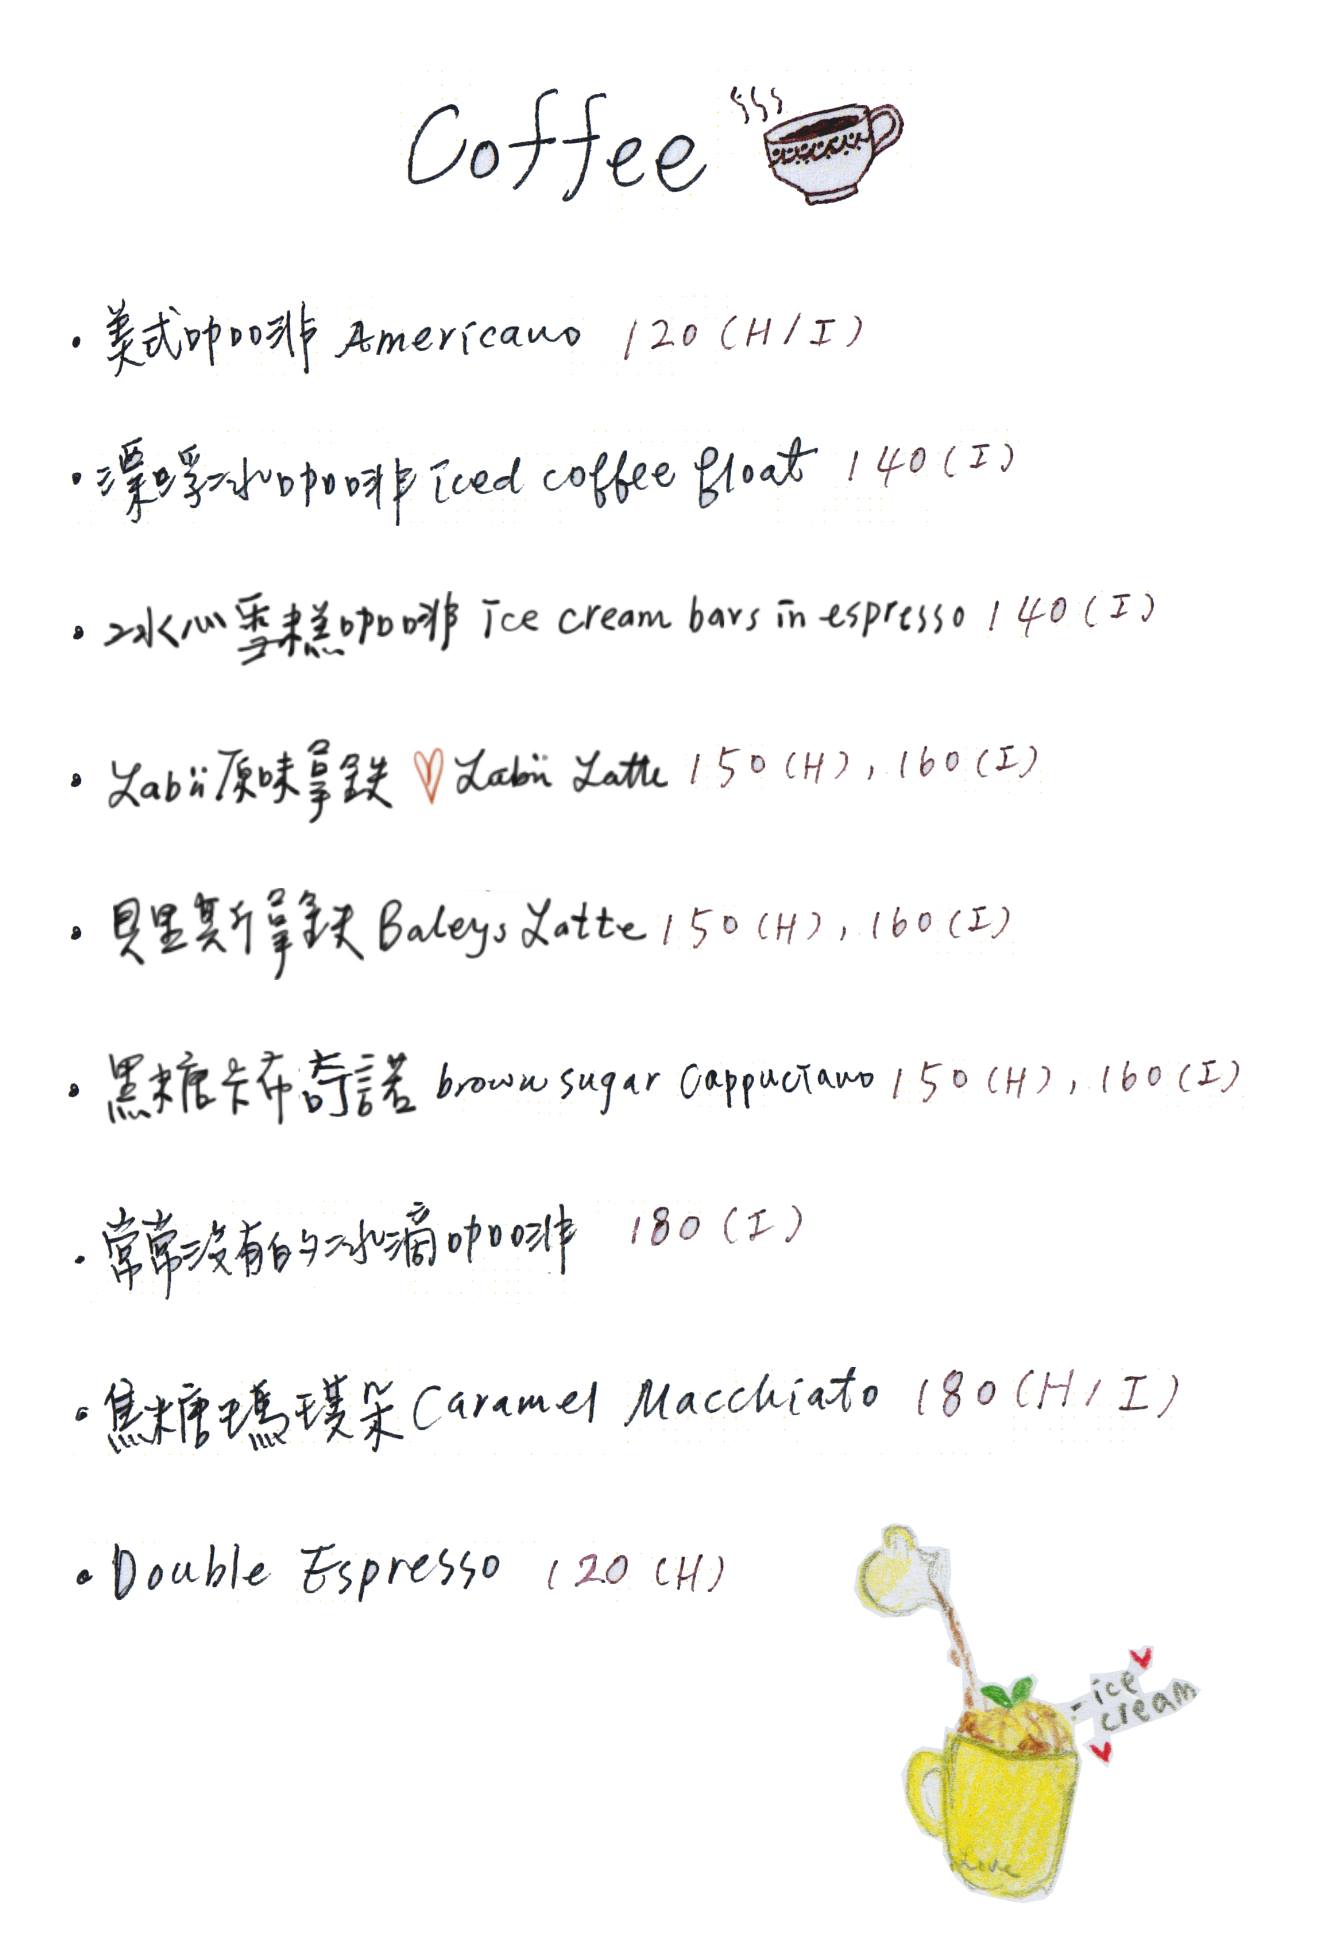 Coffee
• 美式咖啡 Americano 120 (H/I)
• 漂浮冰咖啡 iced coffee float 140 (I)
• 冰心雪糕咖啡 ice cream bars in espresso 140 (I)
• Labii原味拿鐵 ♡ Labii Latte 150 (H), 160 (I)
• 貝里斯拿鐵 Baleys Latte 150 (H), 160 (I)
• 黑糖卡布奇諾 brown sugar Cappuciano 150 (H), 160 (I)
• 常常沒有的冰滴咖啡 180 (I)
• 焦糖瑪璞朵 Caramel Macchiato 180 (H/I)
• Double Espresso 120 (H)
- ice
cream
Love